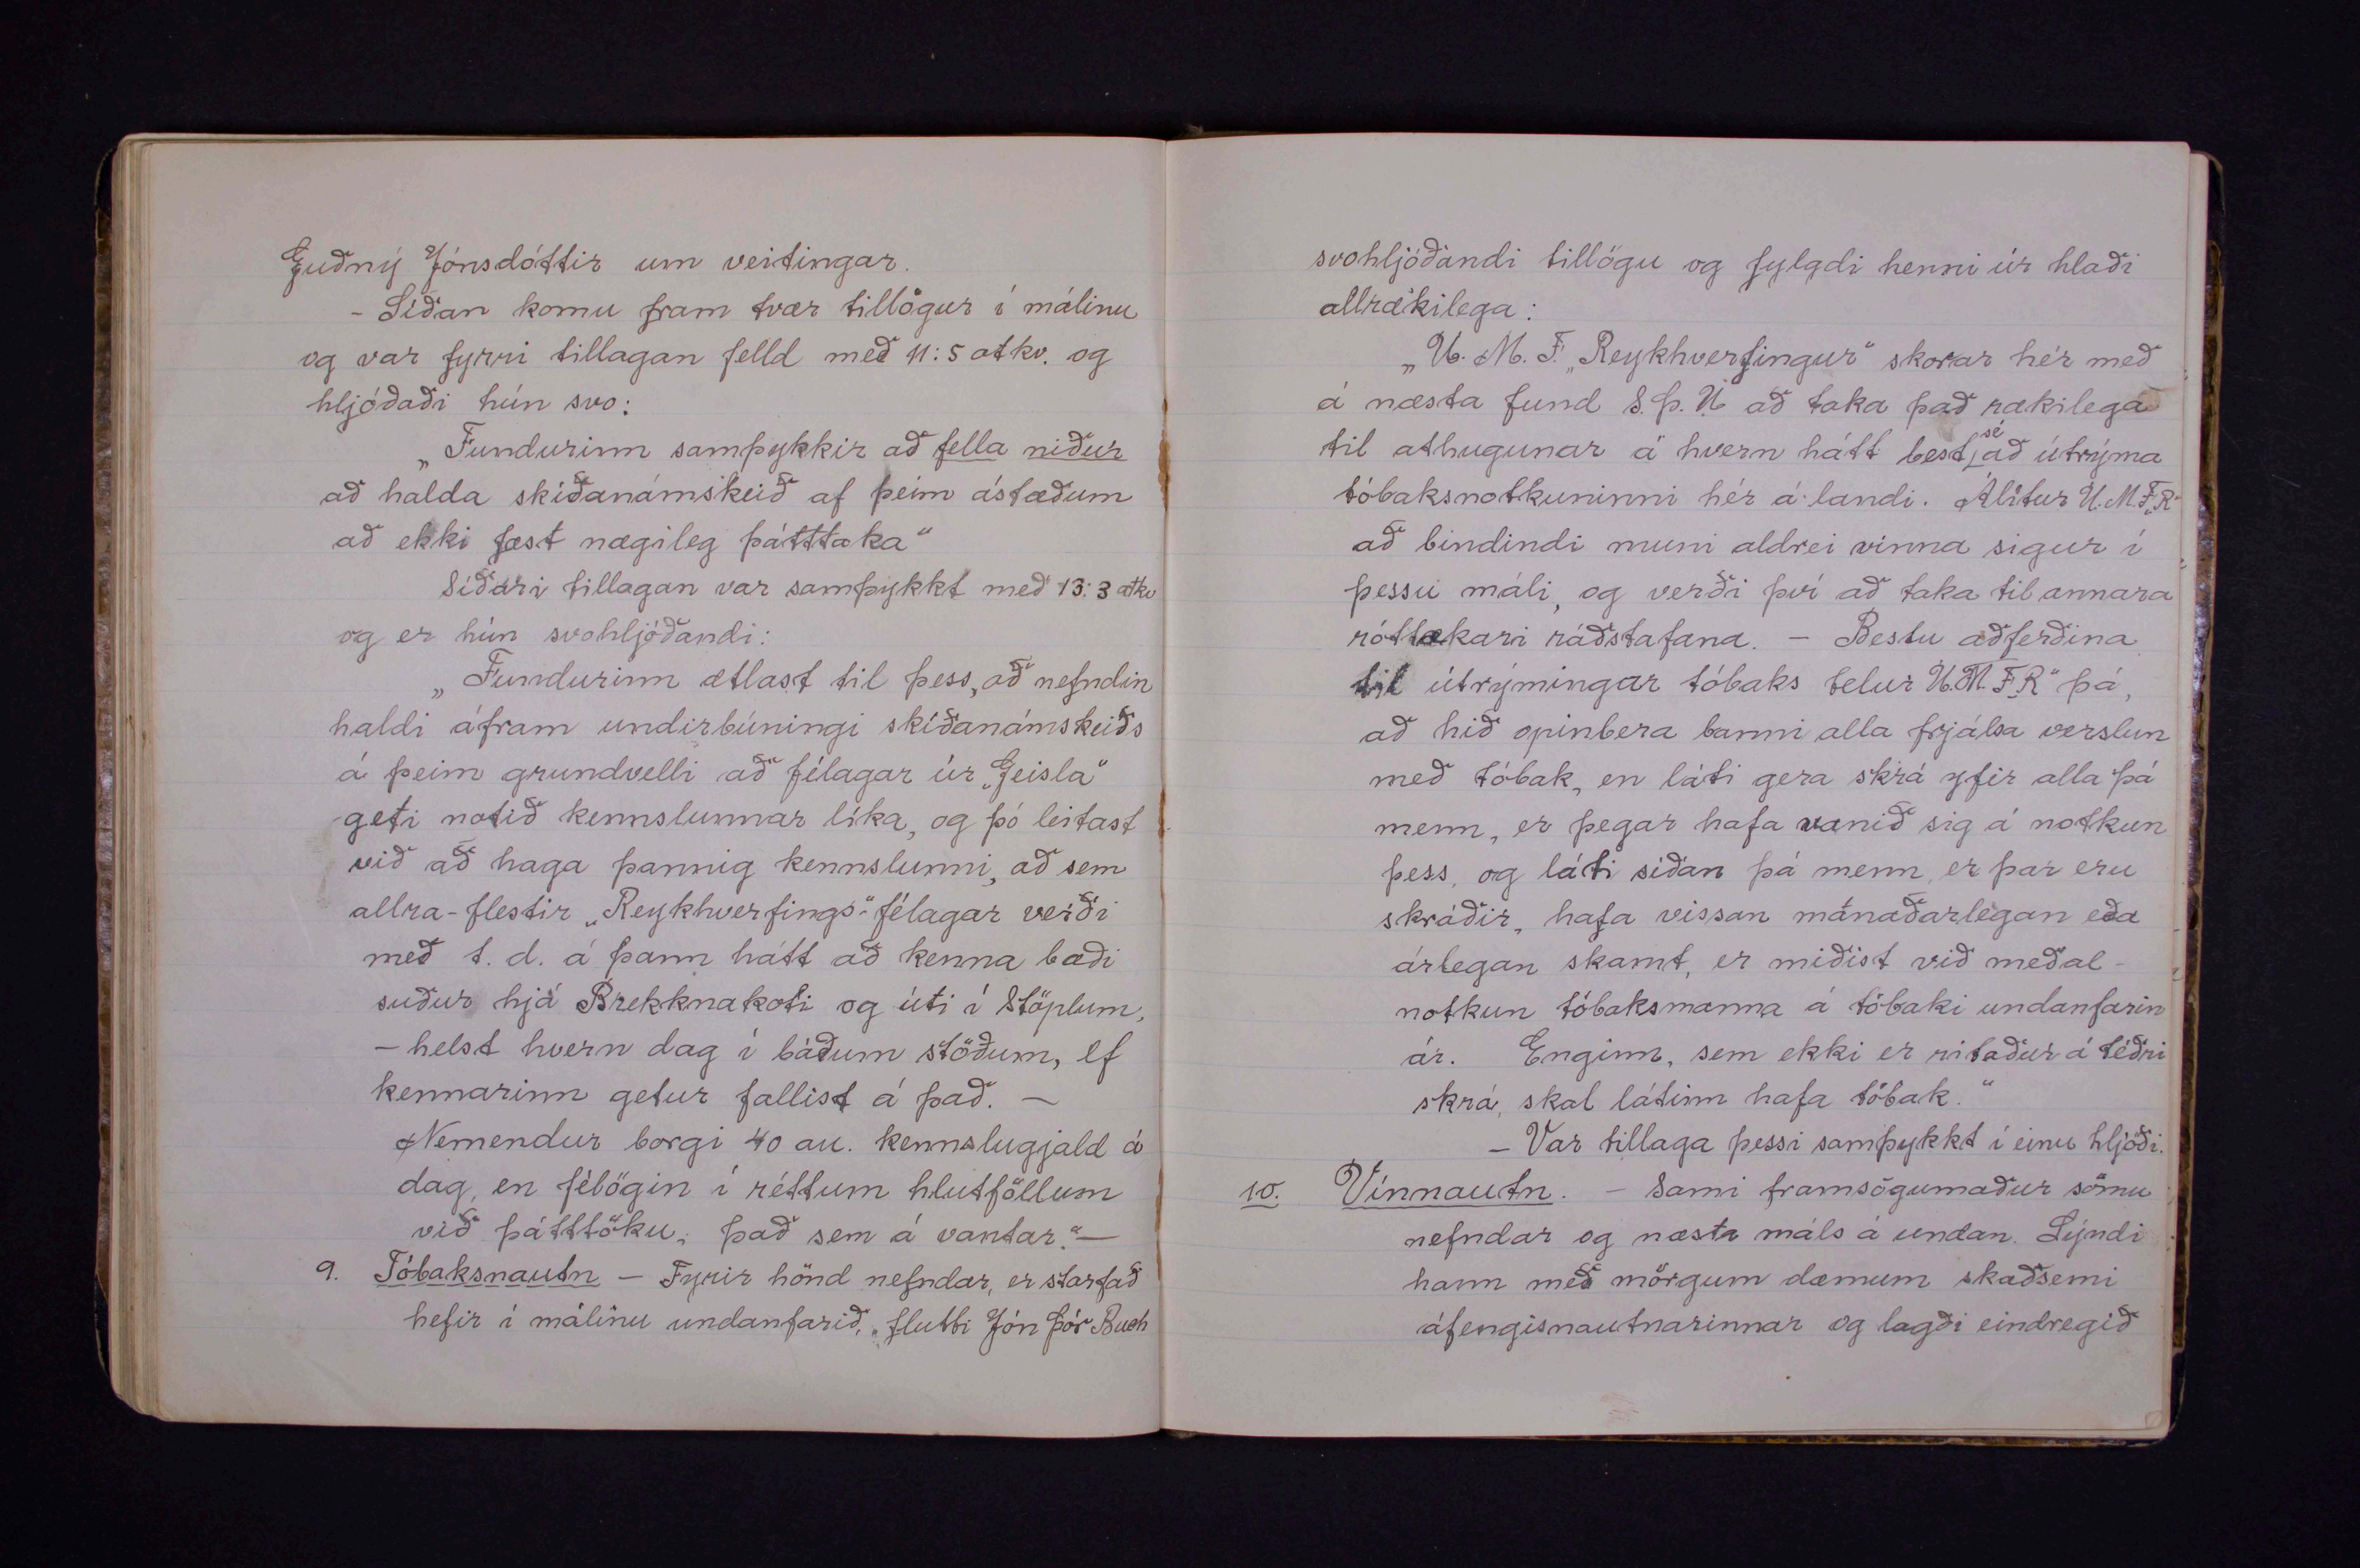 Guðný Jónsdóttir um veitingar.
- Síðan komu fram tvær tillögur í málinu
og var fyrri tillagan felld með 11:5 atkv. og
hljóðaði hún svo:
„Fundurinn samþykkir að fella niður
að halda skíðanámskeið af þeim ástæðum
að ekki fæst nægileg þátttaka“
Síðari tillagan var samþykkt með 13:3 atkv
og er hún svohljóðandi:
„Fundurinn ætlast til þess, að nefndin
haldi áfram undirbúningi skíðanámskeiðs
á þeim grundvelli að félagar úr „Geisla“
geti notið kennslunnar líka, og þó leitast
við að haga þannig kennslunni, að sem
allra-flestir „Reykhverfings“-félagar verði
með t.d. á þann hátt að kenna bæði
suður hjá Brekknakoti og úti í Stöplum,
- helst hvern dag í báðum stöðum, ef
kennarinn getur fallist á það. -
Nemendur borgi 40 au. kennslugjald á
dag, en félögin í réttum hlutföllum
við þátttöku, það sem á vantar.“ -
9. Tóbaksnautn - Fyrir hönd nefndar, er starfað
hefir í málinu undanfarið, flutti Jón Þór Buch
svohljóðandi tillögu og fylgdi henni úr hlaði
allrækilega:
„U.M.F. „Reykhverfingur“ skorar hér með
á næsta fund S.Þ.U að taka það rækilega
til athugunar á hvern hátt best sé að útrýma
tóbaksnotkuninni hér á landi. Álítur U.M.F.„R“
að bindindi muni aldrei vinna sigur í
þessu máli, og verði því að taka til annara
róttækari ráðstafana. - Bestu aðferðina
til útrýmingar tóbaks telur U.M.F.„R“ þá,
að hið opinbera banni alla frjálsa verslun
með tóbak, en láti gera skrá yfir alla þá
menn, er þegar hafa vanið sig á notkun
þess, og láti síðan þá menn, er þar eru
skráðir, hafa vissan mánaðarlegan eða
árlegan skamt, er miðist við meðal-
notkun tóbaksmanna á tóbaki undanfarin
ár. Enginn, sem ekki er ritaður á téðri
skrá, skal látinn hafa tóbak.“
- Var tillaga þessi samþykkt í einu hljóði.
10. Vínnautn. - Sami framsögumaður sömu
nefndar og næsta máls á undan. Sýndi
hann með mörgum dæmum skaðsemi
áfengisnautnarinnar og lagði eindregið